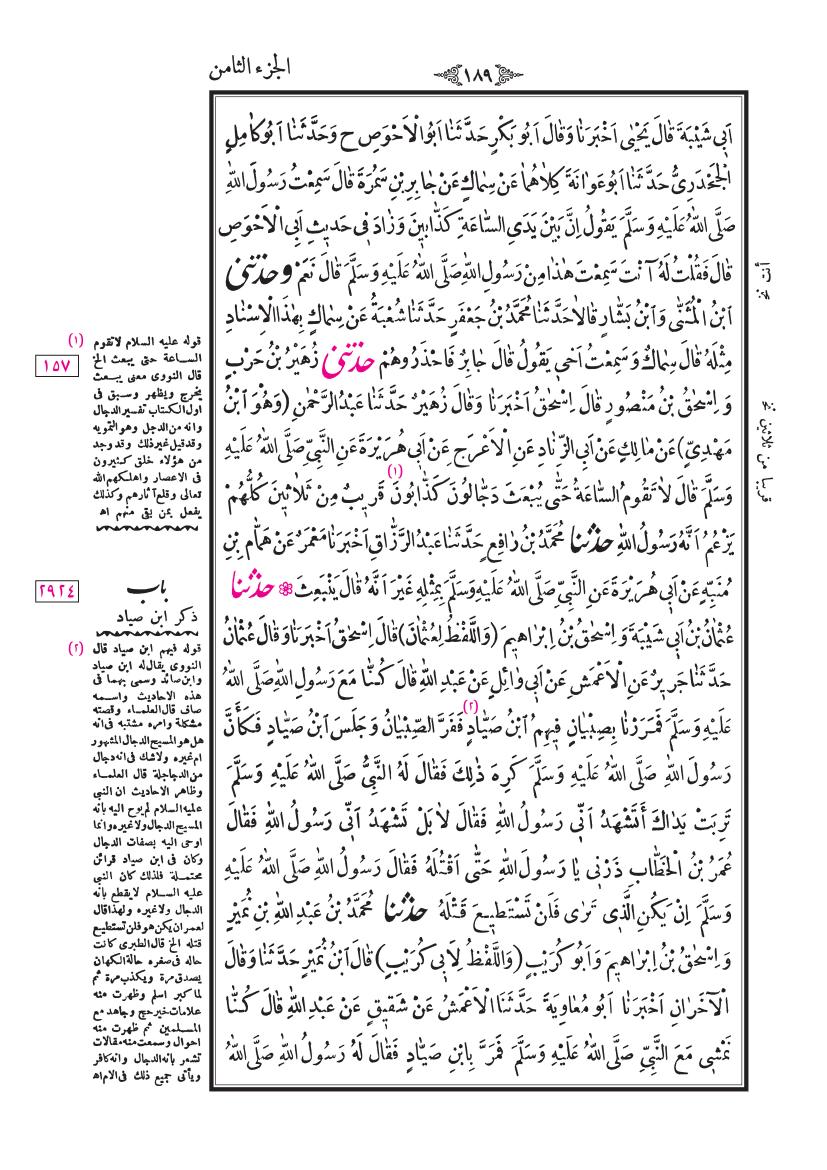 الجزء الثامن
﴿١٨٩﴾
اَبِى شَيْبَةَ قَالَ يَحْيٰى اَخْبَرَنَا وَقَالَ اَبُو بَكْرٍ حَدَّثَنَا اَبُو الْاَحْوَصِ ح وَحَدَّثَنَا اَبُو كَامِلٍ
الْجَحْدَرِىُّ حَدَّثَنَا اَبُو عَوَانَةَ كِلَاهُمَا عَنْ سِمَاكٍ عَنْ جَابِرِ بْنِ سَمُرَةَ قَالَ سَمِعْتُ رَسُولَ اللهِ
صَلَّى اللهُ عَلَيْهِ وَسَلَّمَ يَقُولُ اِنَّ بَيْنَ يَدَىِ السَّاعَةِ كَذَّابِينَ وَزَادَ فِى حَدِيثِ اَبِى الْاَحْوَصِ
قَالَ فَقُلْتُ لَهُ آنْتَ سَمِعْتَ هٰذَا مِنْ رَسُولِ اللهِ صَلَّى اللهُ عَلَيْهِ وَسَلَّمَ قَالَ نَعَمْ وحَدَّثَنِى
ابْنُ الْمُثَنّٰى وَابْنُ بَشَّارٍ قَالَا حَدَّثَنَا مُحَمَّدُ بْنُ جَعْفَرٍ حَدَّثَنَا شُعْبَةُ عَنْ سِمَاكٍ بِهٰذَا الْاِسْنَادِ
مِثْلَهُ قَالَ سِمَاكٌ وَسَمِعْتُ اَخِى يَقُولُ قَالَ جَابِرٌ فَاحْذَرُوهُمْ حَدَّثَنِى زُهَيْرُ بْنُ حَرْبٍ
وَاِسْحٰقُ بْنُ مَنْصُورٍ قَالَ اِسْحٰقُ اَخْبَرَنَا وَقَالَ زُهَيْرٌ حَدَّثَنَا عَبْدُ الرَّحْمٰنِ (وَهُوَ ابْنُ
مَهْدِىٍّ) عَنْ مَالِكٍ عَنْ اَبِى الزِّنَادِ عَنِ الْاَعْرَجِ عَنْ اَبِى هُرَيْرَةَ عَنِ النَّبِىِّ صَلَّى اللهُ عَلَيْهِ
وَسَلَّمَ قَالَ لَا تَقُومُ السَّاعَةُ حَتّٰى يُبْعَثَ دَجَّالُونَ كَذَّابُونَ (١) قَرِيبٌ مِنْ ثَلَاثِينَ كُلُّهُمْ
يَزْعُمُ اَنَّهُ رَسُولُ اللهِ حَدَّثَنَا مُحَمَّدُ بْنُ رَافِعٍ حَدَّثَنَا عَبْدُ الرَّزَّاقِ اَخْبَرَنَا مَعْمَرٌ عَنْ هَمَّامِ بْنِ
مُنَبِّهٍ عَنْ اَبِى هُرَيْرَةَ عَنِ النَّبِىِّ صَلَّى اللهُ عَلَيْهِ وَسَلَّمَ بِمِثْلِهِ غَيْرَ اَنَّهُ قَالَ يَنْبَعِثَ ❁ حَدَّثَنَا
عُثْمَانُ بْنُ اَبِى شَيْبَةَ وَاِسْحٰقُ بْنُ اِبْرَاهِيمَ (وَاللَّفْظُ لِعُثْمَانَ) قَالَ اِسْحٰقُ اَخْبَرَنَا وَقَالَ عُثْمَانُ
حَدَّثَنَا جَرِيرٌ عَنِ الْاَعْمَشِ عَنْ اَبِى وَائِلٍ عَنْ عَبْدِ اللهِ قَالَ كُنَّا مَعَ رَسُولِ اللهِ صَلَّى اللهُ
عَلَيْهِ وَسَلَّمَ فَمَرَرْنَا بِصِبْيَانٍ فِيهِمُ ابْنُ صَيَّادٍ (٢) فَفَرَّ الصِّبْيَانُ وَجَلَسَ ابْنُ صَيَّادٍ فَكَأَنَّ
رَسُولَ اللهِ صَلَّى اللهُ عَلَيْهِ وَسَلَّمَ كَرِهَ ذٰلِكَ فَقَالَ لَهُ النَّبِىُّ صَلَّى اللهُ عَلَيْهِ وَسَلَّمَ
تَرِبَتْ يَدَاكَ أَتَشْهَدُ اَنِّى رَسُولُ اللهِ فَقَالَ لَا بَلْ تَشْهَدُ اَنِّى رَسُولُ اللهِ فَقَالَ
عُمَرُ بْنُ الْخَطَّابِ ذَرْنِى يَا رَسُولَ اللهِ حَتّٰى اَقْتُلَهُ فَقَالَ رَسُولُ اللهِ صَلَّى اللهُ عَلَيْهِ
وَسَلَّمَ اِنْ يَكُنِ الَّذِى تَرٰى فَلَنْ تَسْتَطِيعَ قَتْلَهُ حَدَّثَنَا مُحَمَّدُ بْنُ عَبْدِ اللهِ بْنِ نُمَيْرٍ
وَاِسْحٰقُ بْنُ اِبْرَاهِيمَ وَاَبُو كُرَيْبٍ (وَاللَّفْظُ لِاَبِى كُرَيْبٍ) قَالَ ابْنُ نُمَيْرٍ حَدَّثَنَا وَقَالَ
الْآخَرَانِ اَخْبَرَنَا اَبُو مُعَاوِيَةَ حَدَّثَنَا الْاَعْمَشُ عَنْ شَقِيقٍ عَنْ عَبْدِ اللهِ قَالَ كُنَّا
نَمْشِى مَعَ النَّبِىِّ صَلَّى اللهُ عَلَيْهِ وَسَلَّمَ فَمَرَّ بِابْنِ صَيَّادٍ فَقَالَ لَهُ رَسُولُ اللهِ صَلَّى اللهُ
أنت نخ
قريبا من ثلاثين نخ
(١) قوله عليه السلام لاتقوم
الساعة حتى يبعث الخ
١٥٧
قال النووى معنى يبعث
يخرج ويظهر وسبق فى
اول الكتاب تفسير الدجال
وانه من الدجل وهو التمويه
وقد قيل غير ذلك وقد وجد
من هؤلاء خلق كثيرون
فى الاعصار واهلكهم الله
تعالى وقلع آثارهم وكذلك
يفعل بمن بقى منهم اه
باب
٢٩٢٤
ذكر ابن صياد
(٢) قوله فيهم ابن صياد قال
النووى يقال له ابن صياد
وابن صائد وسمى بهما فى
هذه الاحاديث واسمه
صاف قال العلماء وقصته
مشكلة وامره مشتبه فى انه
هل هو المسيح الدجال المشهور
ام غيره ولاشك فى انه دجال
من الدجاجلة قال العلماء
وظاهر الاحاديث ان النبى
عليه السلام لم يوح اليه بانه
المسيح الدجال ولا غيره وانما
اوحى اليه بصفات الدجال
وكان فى ابن صياد قرائن
محتملة فلذلك كان النبى
عليه السلام لا يقطع بانه
الدجال ولا غيره ولهذا قال
لعمر ان يكن هو فلن تستطيع
قتله الخ قال الطبرى كانت
حاله فى صغره حالة الكهان
يصدق مرة ويكذب مرة ثم
لما كبر اسلم وظهرت منه
علامات خير حج وجاهد مع
المسلمين ثم ظهرت منه
احوال وسمعت منه مقالات
تشعر بانه الدجال وانه كافر
ويأتى جميع ذلك فى الام اه